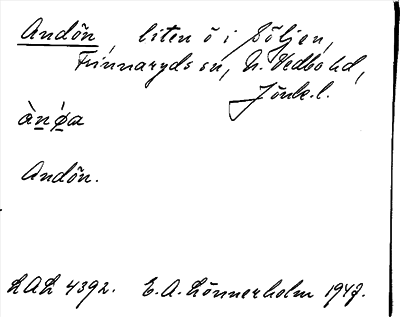 Andön, liten ö i Söljen,
Finnaryds sn, N. Vedbo hd,
Jönk. l.
Andön.
LAL 4392. E. A. Lönnerholm 1947.